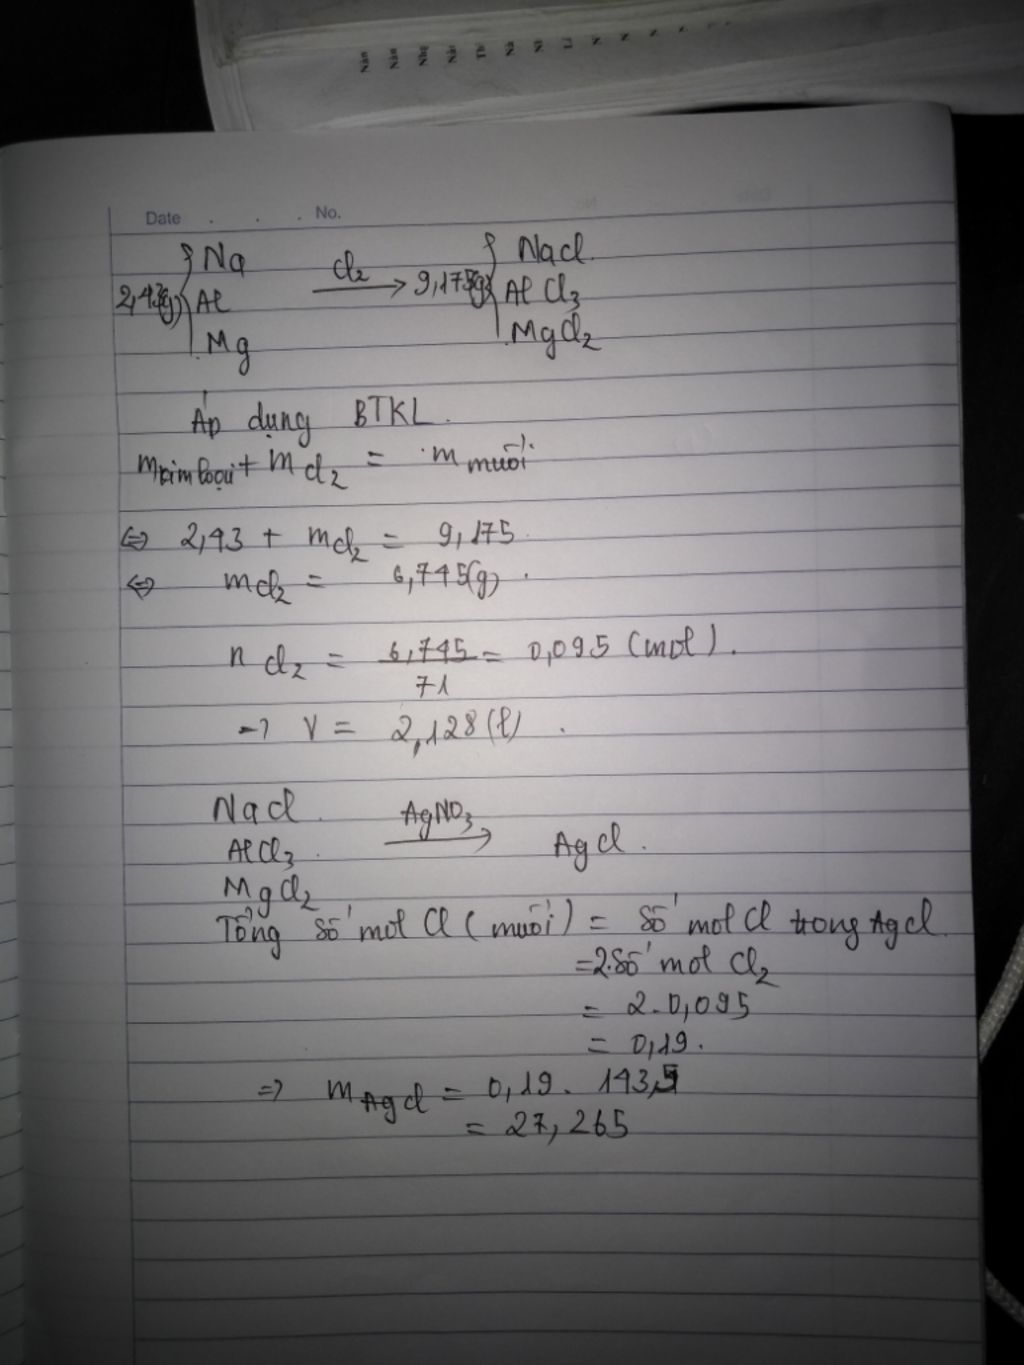 Nân
Nân
Nhụ
Nâi
Date . . . No.
Na Cl2 NaCl
2,43(g) Al → 9,175(g) AlCl3
Mg MgCl2
Áp dụng BTKL.
mkim loại + mCl2 = m muối
⇔ 2,43 + mCl2 = 9,175
⇔ mCl2 = 6,745(g).
nCl2 = 6,745/71 = 0,095 (mol).
→ V = 2,128(l).
NaCl
AlCl3 AgNO3 → AgCl.
MgCl2
Tổng số mol Cl (muối) = số mol Cl trong AgCl
= 2.số mol Cl2
= 2.0,095
= 0,19.
=> mAgCl = 0,19. 143,5
= 27,265